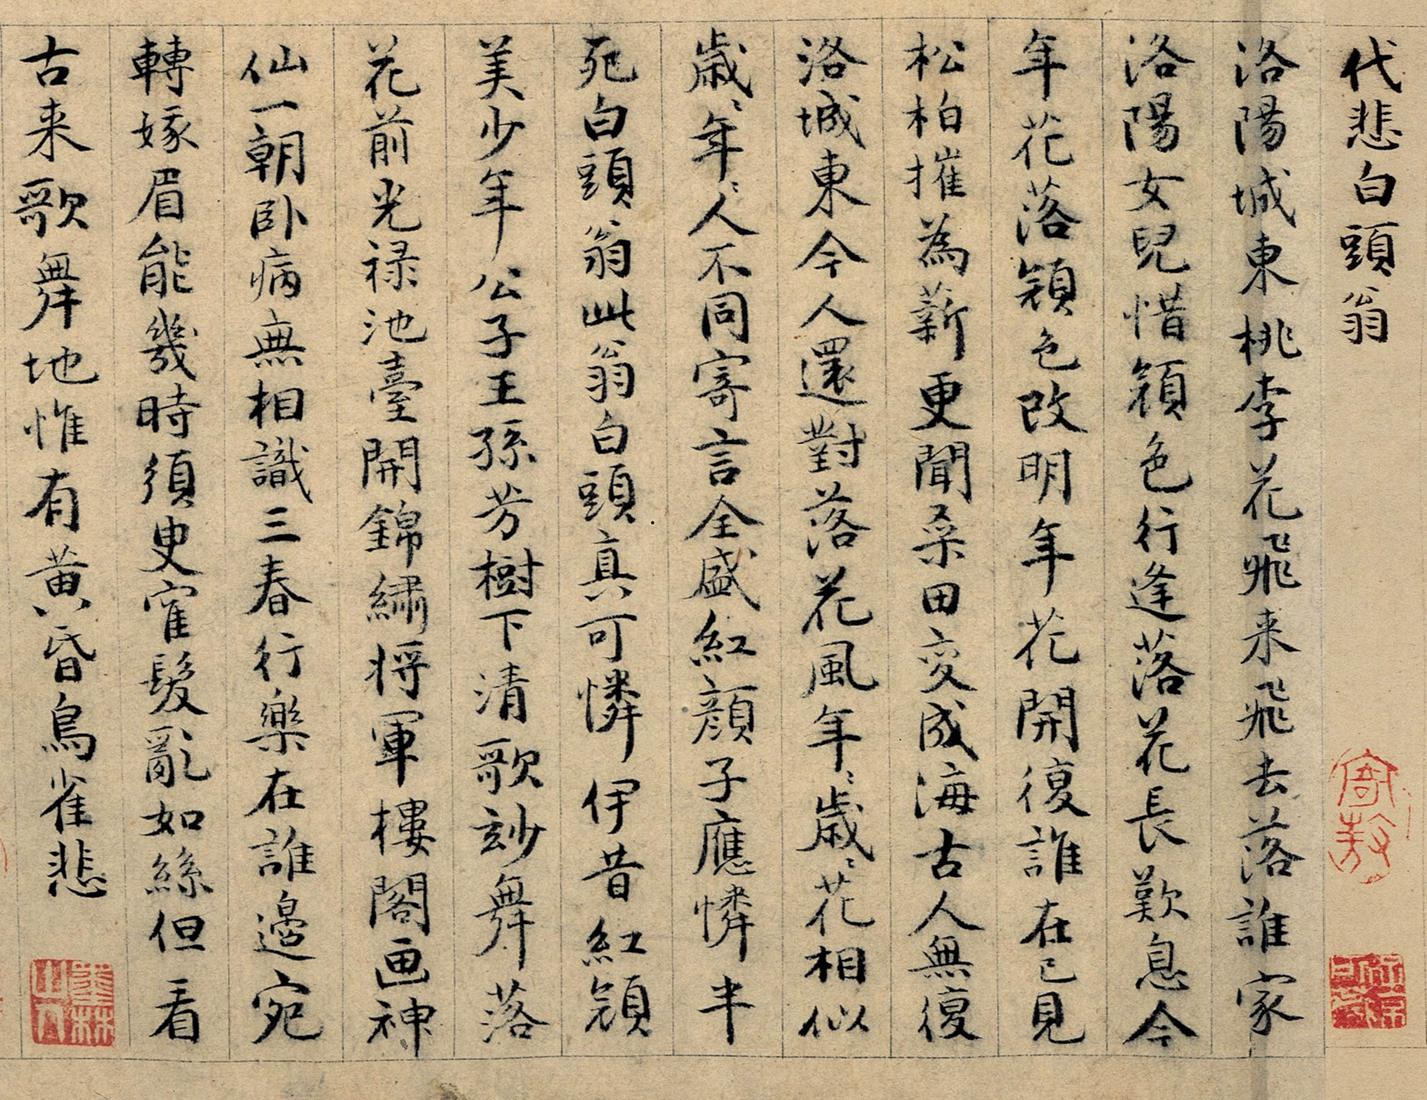 代悲白頭翁
洛陽城東桃李花飛来飛去落誰家
洛陽女兒惜顏色行逢落花長歎息今
年花落顏色改明年花開復誰在已見
松柏摧為薪更聞桑田変成海古人無復
洛城東今人還對落花風年〻歲〻花相似
歲〻年〻人不同寄言全盛紅顔子應憐半
死白頭翁此翁白頭真可憐伊昔紅顏
美少年公子王孫芳樹下清歌玅舞落
花前光禄池臺開錦繡将軍樓閣画神
仙一朝卧病無相識三春行樂在誰邉宛
轉嫁眉能幾時須臾寉髮亂如絲但看
古来歌舞地惟有黄昏鳥雀悲